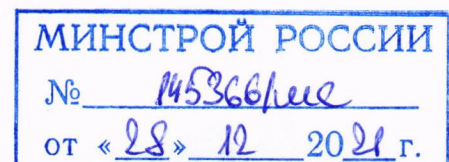 МИНСТРОЙ РОССИИ
№ 145366/ие
от «28» 12 2021 г.